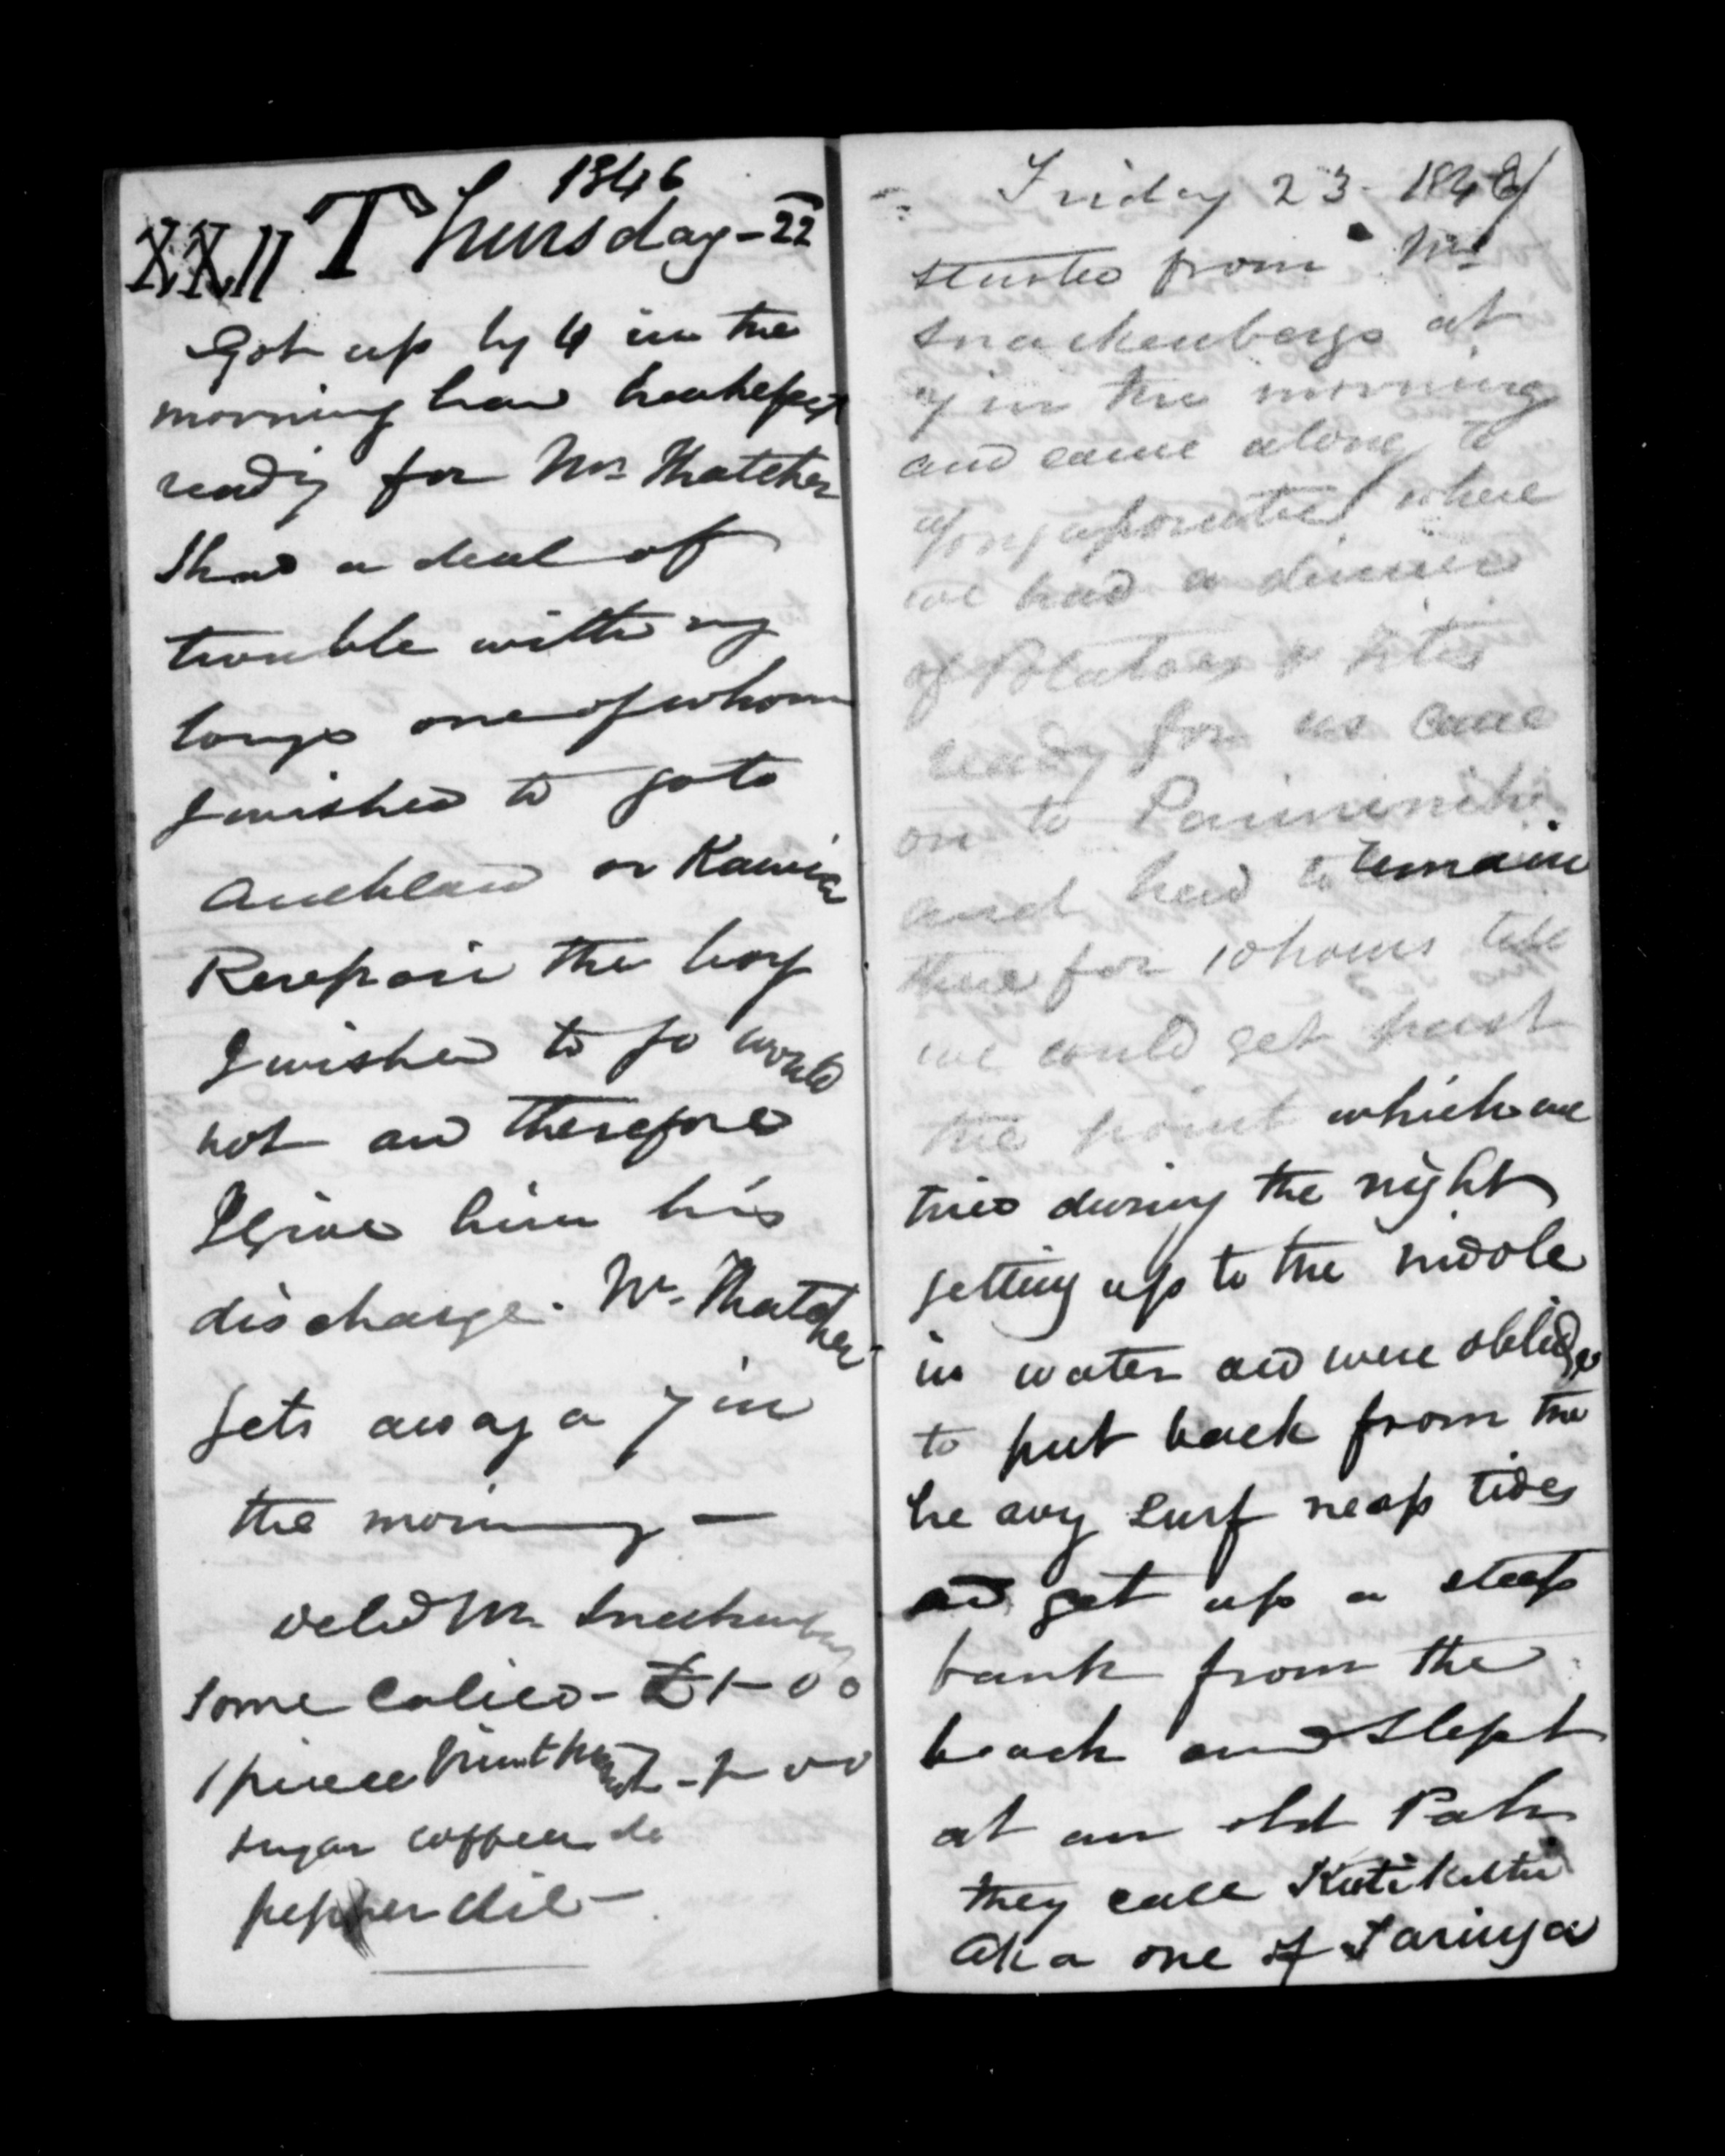 1846
XXII Thursday - 22
Got up by 4 in the
morning had breakfast
ready for Mr. Thatcher
I had a deal of
trouble with my
boys one of whom
I wished to go to
Aucklan or Kawia
the boy
I wished to go would
not and therefore
I give him his
discharge. Mr. Thatcher
gets away a 7 in
the morning —
Deld Mr. Snackenberg
some Calico - £1-00
1 piece print - 1-00
sugar coffee do
pepper Oil —
Friday 23 - 1846
started from Mr
Snackenbergs at
7 in the morning
and came along to
where
we had a dinner
of Potatoes &
ready for us came
on to
and had to remain
there for 10 hours till
we could get past
the point which we
tried during the night
getting up to the middle
in water and were oblidged
to put back from the
heavy surf neap tides
and get up a steep
bank from the
beach and slept
at an old Pah
they call
Aka one of Taringa